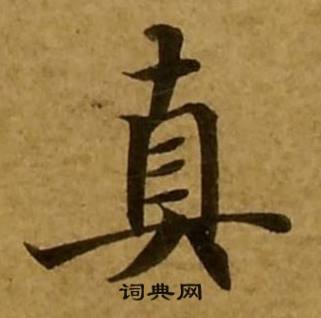 真
词典网